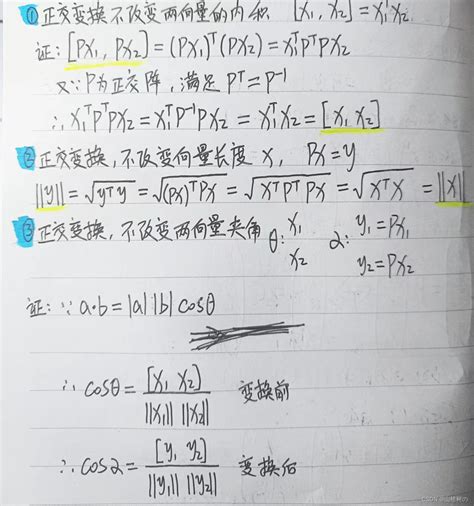 ①正交变换不改变两向量的内积 [x₁, x₂] = x₁ᵀx₂
证: [Px₁, Px₂] = (Px₁)ᵀ(Px₂) = x₁ᵀPᵀPx₂
又∵P为正交阵, 满足 Pᵀ = P⁻¹
∴ x₁ᵀPᵀPx₂ = x₁ᵀP⁻¹Px₂ = x₁ᵀx₂ = [x₁ x₂]
②正交变换, 不改变向量长度 x, Px = y
||y|| = √(yᵀy) = √((Px)ᵀPx) = √(xᵀPᵀPx) = √(xᵀx) = ||x||
③正交变换, 不改变两向量夹角 θ: x₁ x₂ α: y₁ = Px₁ y₂ = Px₂
证: ∵ a·b = |a||b| cosθ
∴ cosθ = [x₁ x₂] / ||x₁|| ||x₂|| 变换前
∴ cosα = [y₁ y₂] / ||y₁|| ||y₂|| 变换后